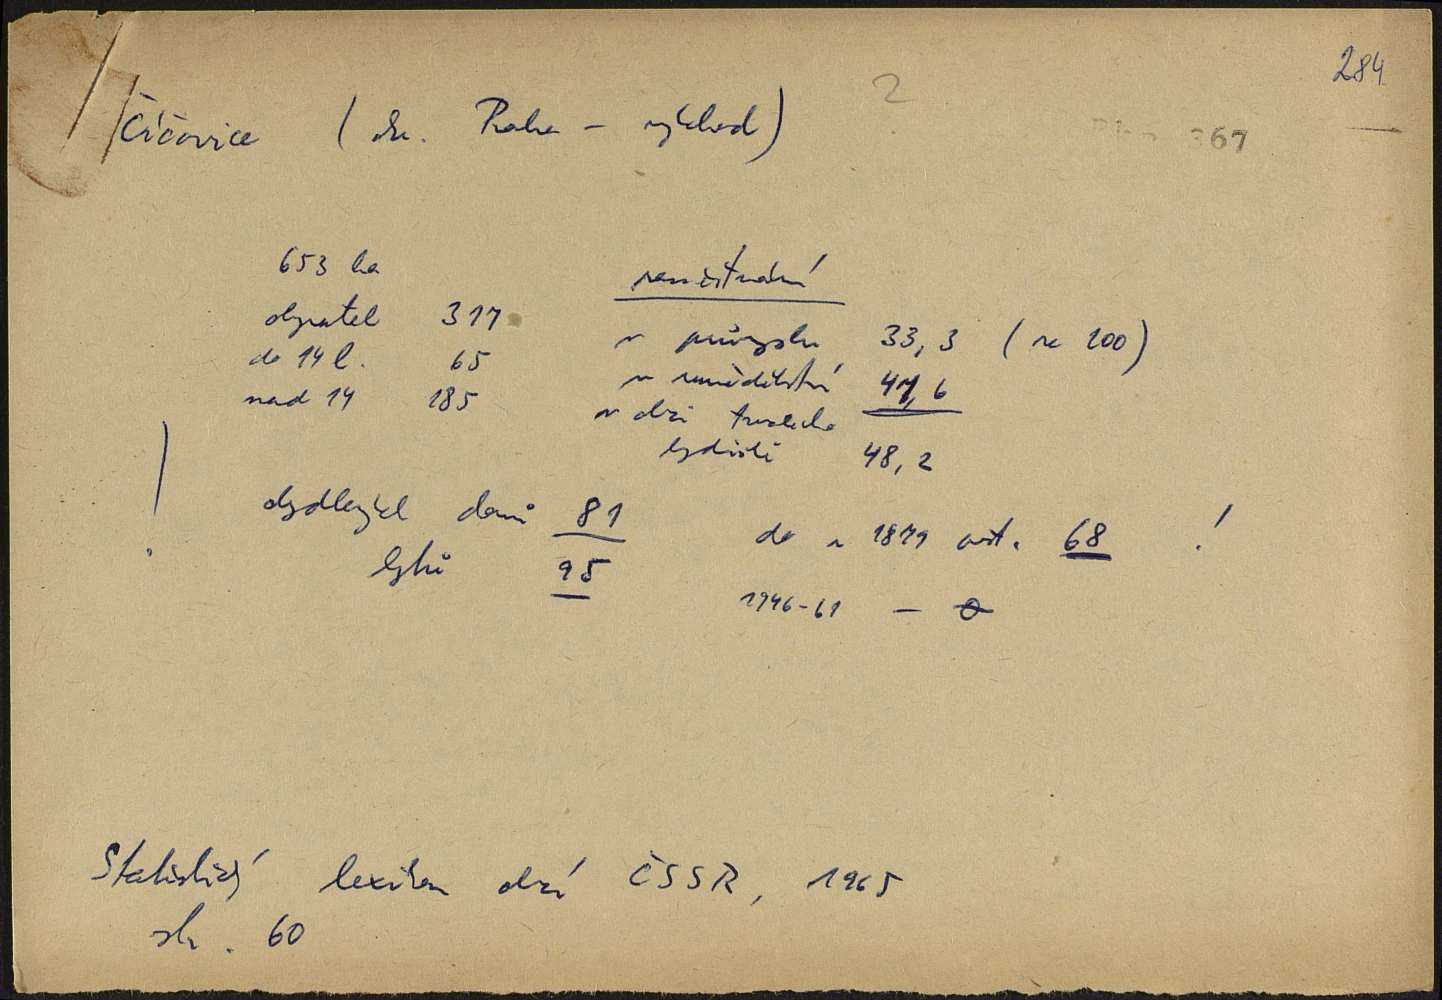 284
2
367
Číčovice (okr. Praha – východ)
653 ha
obyvatel 317
do 14 l. 65
nad 14 185
zaměstnání
v průmyslu 33,3 (ze 100)
v zemědělství 47,6
v obci trvale
bydliště 48,2
obydlených domů 81
bytů 95
do r 1879 post. 68 !
1946-61 – 0
!
Statistický lexikon obcí ČSSR, 1965
str. 60